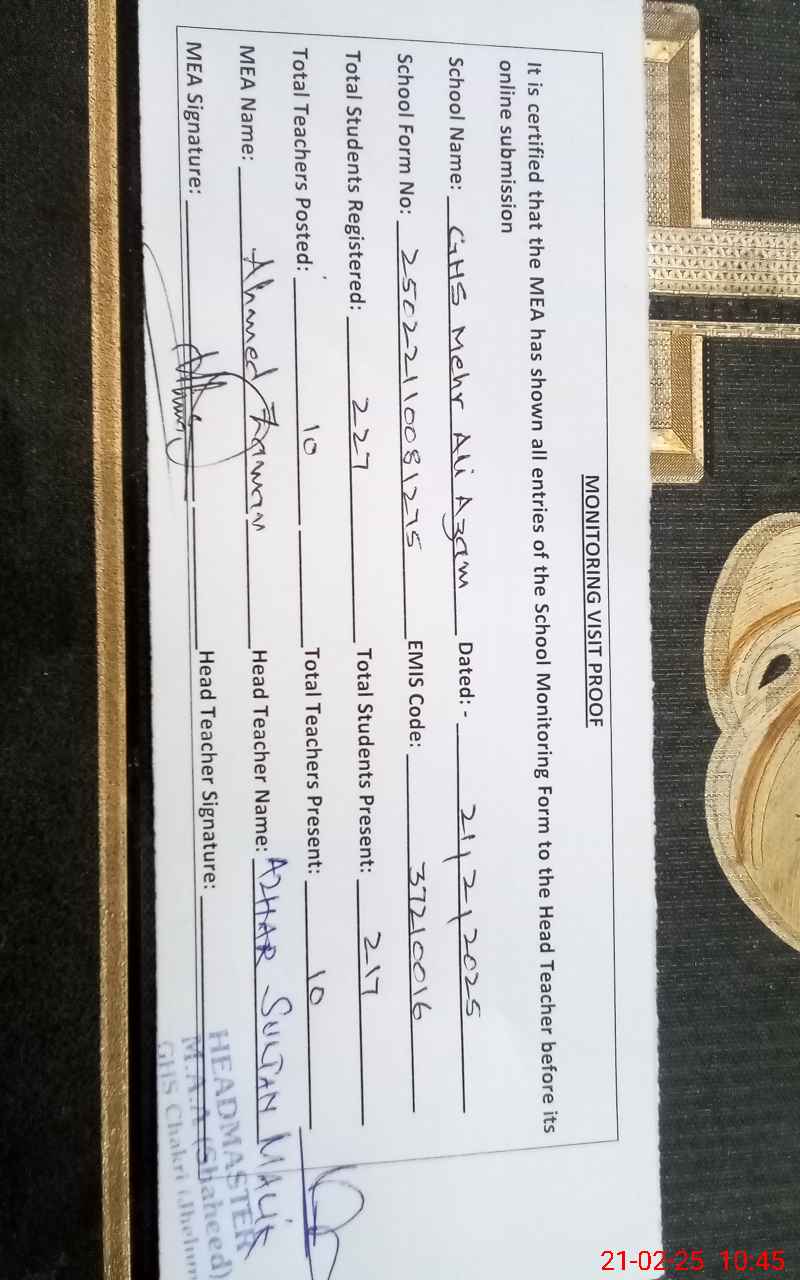 MONITORING VISIT PROOF
It is certified that the MEA has shown all entries of the School Monitoring Form to the Head Teacher before its
online submission
School Name: GHS Mehr Ali Azam Dated: - 21/2/2025
School Form No: 25022110081275 EMIS Code: 37210016
Total Students Registered: 227 Total Students Present: 217
Total Teachers Posted: 10 Total Teachers Present: 10
MEA Name: Ahmed Zaman Head Teacher Name: AZHAR SULTAN MALIK
MEA Signature: Head Teacher Signature:
HEADMASTER
M.A.A (Shaheed)
GHS Chakri (Jhelum
21-02-25 10:45